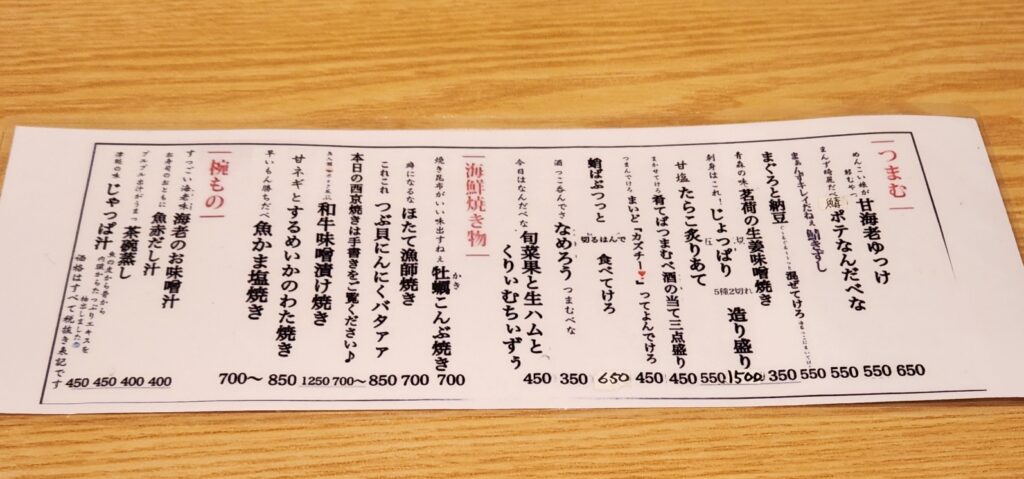 つまむ
めんこい娘が
甘海老ゆっけ 650
まんず綺麗だべ
鯖ポテなんだべな 550
まあんずキレイだねぇ
鯖きずし 550
まぐろと納豆
混ぜてけろ 550
青森の味
茗荷の生姜味噌焼き 350
刺身はこれ!
じょっぱり
5種2切れ
造り盛り 1500
甘塩
たらこ炙りあて 550
まかせてけろ
肴てばつまむべ酒の当て三点盛り 450
つまんでけろ
まいど『カズチー♥』ってよんでけろ 450
蛸ばぶつっと
切るはんで
食べてけろ 650
酒っこ呑んでさ
なめろう
つまむべな 350
今日はなんだべな
旬菜果と生ハムと
くりぃむちぃずぅ 450
海鮮焼き物
焼き昆布がいい味出すねぇ
牡蠣こんぶ焼き 700
かき
時になるな
ほたて漁師焼き 700
これこれ
つぶ貝にんにくバタァァ 850
本日の西京焼きは手書きをご覧ください♪ 700～
和牛味噌漬け焼き 1250
甘ネギと
するめいかのわた焼き 850
早いもん勝ちだべ
魚かま塩焼き 700～
椀もの
すっごい海老味
海老のお味噌汁 400
お寿司のおともに
魚赤だし汁 400
プルプル出汁がうまっ
茶碗蒸し 450
津軽の味
じゃっぱ汁 450
魚の皮から骨から
内臓からたっぷりエキスを
抽出しました
価格はすべて税抜き表記です